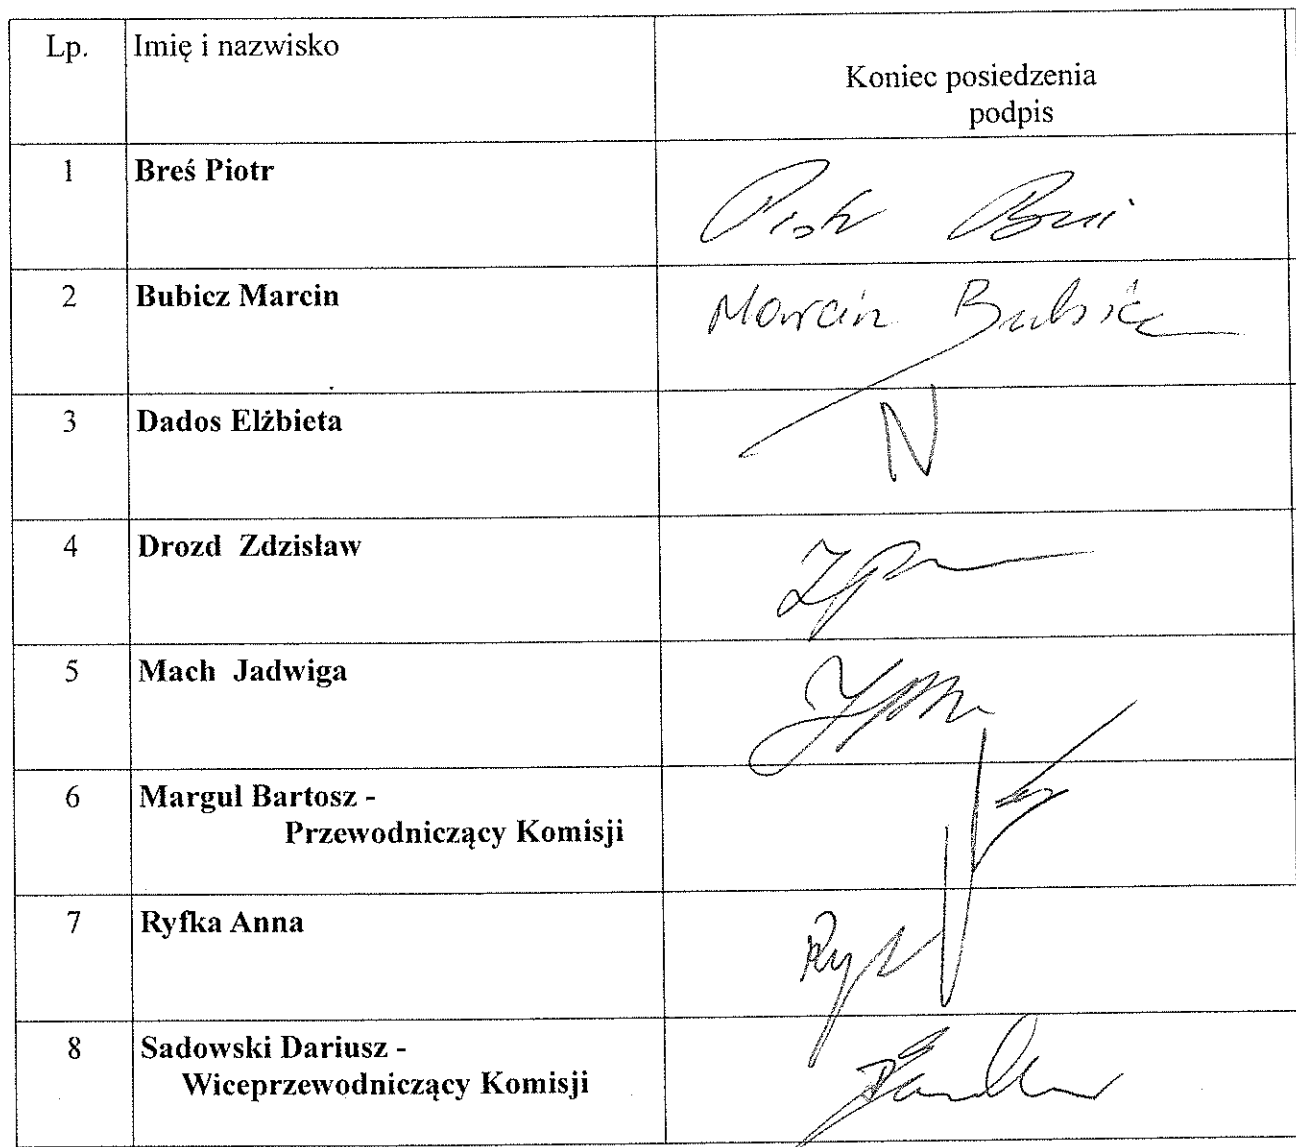 Lp. Imię i nazwisko
Koniec posiedzenia
podpis
1 Breś Piotr
Piotr Breś
2 Bubicz Marcin
Marcin Bubicz
3 Dados Elżbieta
N
4 Drozd Zdzisław
5 Mach Jadwiga
6 Margul Bartosz -
Przewodniczący Komisji
7 Ryfka Anna
8 Sadowski Dariusz -
Wiceprzewodniczący Komisji